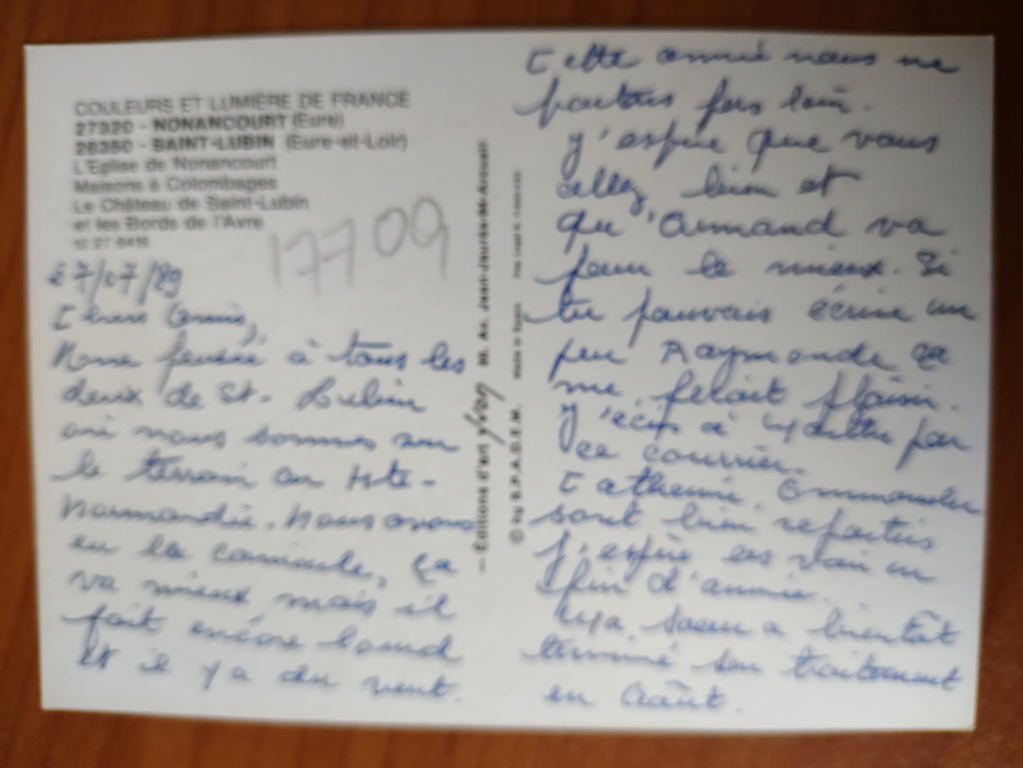 COULEURS ET LUMIÈRE DE FRANCE
27320 - NONANCOURT (Eure)
28350 - SAINT-LUBIN (Eure-et-Loir)
L'Eglise de Nonancourt
Maisons à Colombages
Le Château de Saint-Lubin
et les Bords de l'Avre
17709
27/07/89
Chers Amis,
à tous les
deux de St. Lubin
où nous sommes sur
le terrain en Hte-
Normandie. Nous avons
eu la canicule, ça
va mieux mais il
fait encore lourd
et il y a du vent.
- Editions d'art yvon
© by S.P.A.D.E.M. Made in
Cette année nous ne
partons pas loin.
J'espère que vous
allez bien et
qu'Armand va
pour le mieux. Si
tu pouvais écrire un
peu Raymonde ça
me plaisir.
J'écris à par
ce courrier.
Catherine, Emmanuelle
sont bien repartis
J'espère les voir en
fin d'année.
Ma soeur a bientôt
terminé son traitement
en Août.